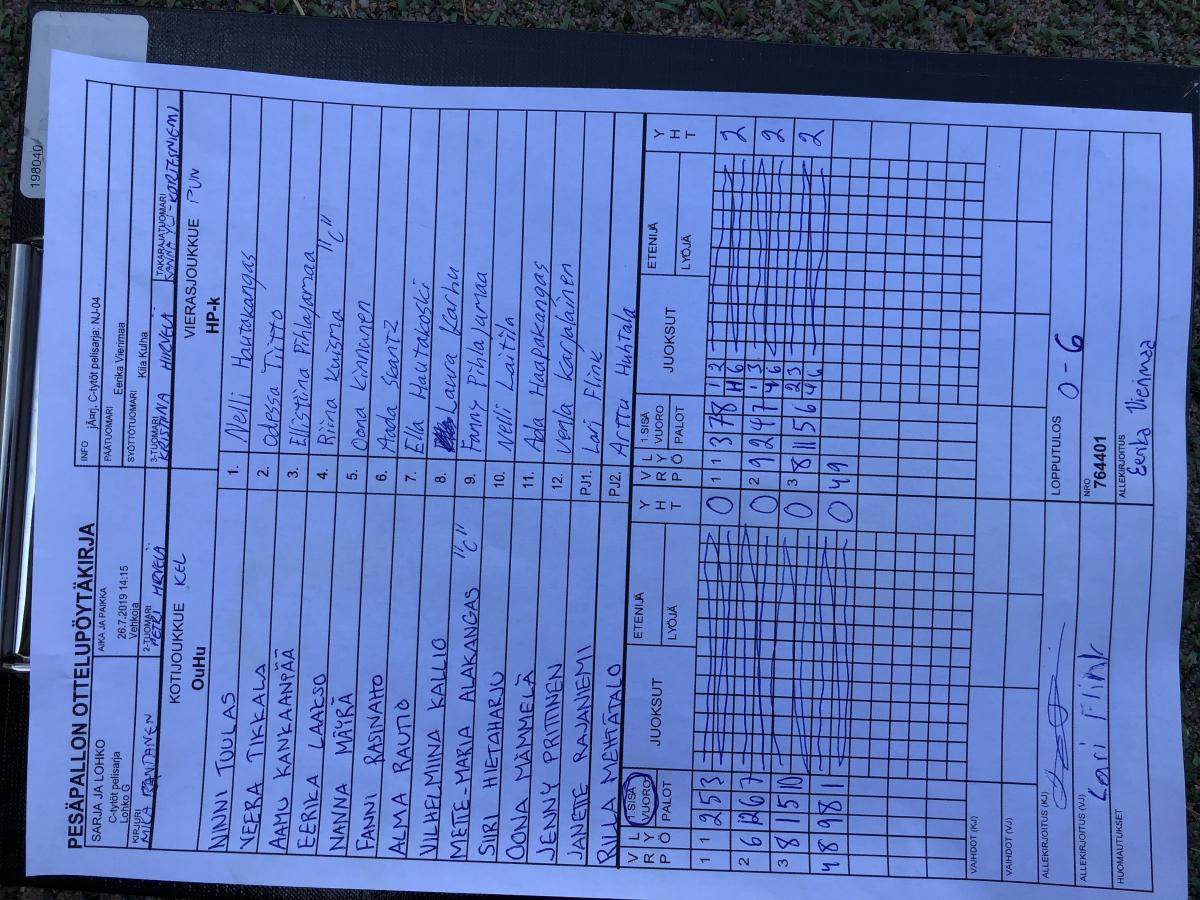 198040
PESÄPALLON OTTELUPÖYTÄKIRJA
SARJA JA LOHKO
C-tytöt pelisarja
Lohko G
AIKA JA PAIKKA
26.7.2019 14:15
Vehkoja
INFO
C-tytöt pelisarja: NJ-04
PÄÄTUOMARI
Eerika Vierimaa
SYÖTTÖTUOMARI
Kiia Kulha
KIRJURI
MIKA RANTANEN
2-TUOMARI
PETRI HIRVELÄ
3-TUOMARI
KRISTIINA HIRVELÄ
TAKARAJATUOMARI
KOTIJOUKKUE KEL
OuHu
VIERASJOUKKUE PUN
HP-k
NINNI TUULAS 1. Nelli Hautakangas
VEERA TIKKALA 2. Odessa Tiitto
AAMU KANKAANPÄÄ 3. Ellistiina Pihlajamaa
EERIKA LAAKSO 4. Riina Kuisma "C"
NANNA MÄÄRÄ 5. Oona Kinnunen
FANNI RASINAHO 6. Aada Skantz
ALMA RAUTIO 7. Ella Hautakoski
VILHELMIINA KALLIO 8. Laura Karhu
METTE-MARIA ALAKANGAS "C" 9. Fanny Pihlajamaa
SIIRI HIETAHARJU 10. Nelli Laitila
OONA MÄMMELÄ 11. Ada Haapakangas
JENNY PRITTINEN 12. Venla Karjalainen
JANETTE RAJANIEMI PJ1. Lari Flink
RIILA MEHTÄTALO PJ2. Arttu Huntala
V R L Y P Ö 1.SISÄ VUORO PALOT JUOKSUT ETENIJÄ LYÖJÄ Y H T V R L Y P Ö 1.SISÄ VUORO PALOT JUOKSUT ETENIJÄ LYÖJÄ Y H T
1 1 2 5 3 0 1 1 3 7 8 1 2 4 6 2
2 6 12 6 7 0 2 9 2 4 7 1 3 4 6 2
3 8 11 5 10 0 3 8 11 5 6 2 3 4 6 2
4 8 9 8 1 0 4 9
VAIHDOT (KJ)
VAIHDOT (VJ)
ALLEKIRJOITUS (KJ)
LOPPUTULOS
0 - 6
ALLEKIRJOITUS (VJ)
Lari Flink
NRO
764401
HUOMAUTUKSET
ALLEKIRJOITUS
Eerika Vierimaa